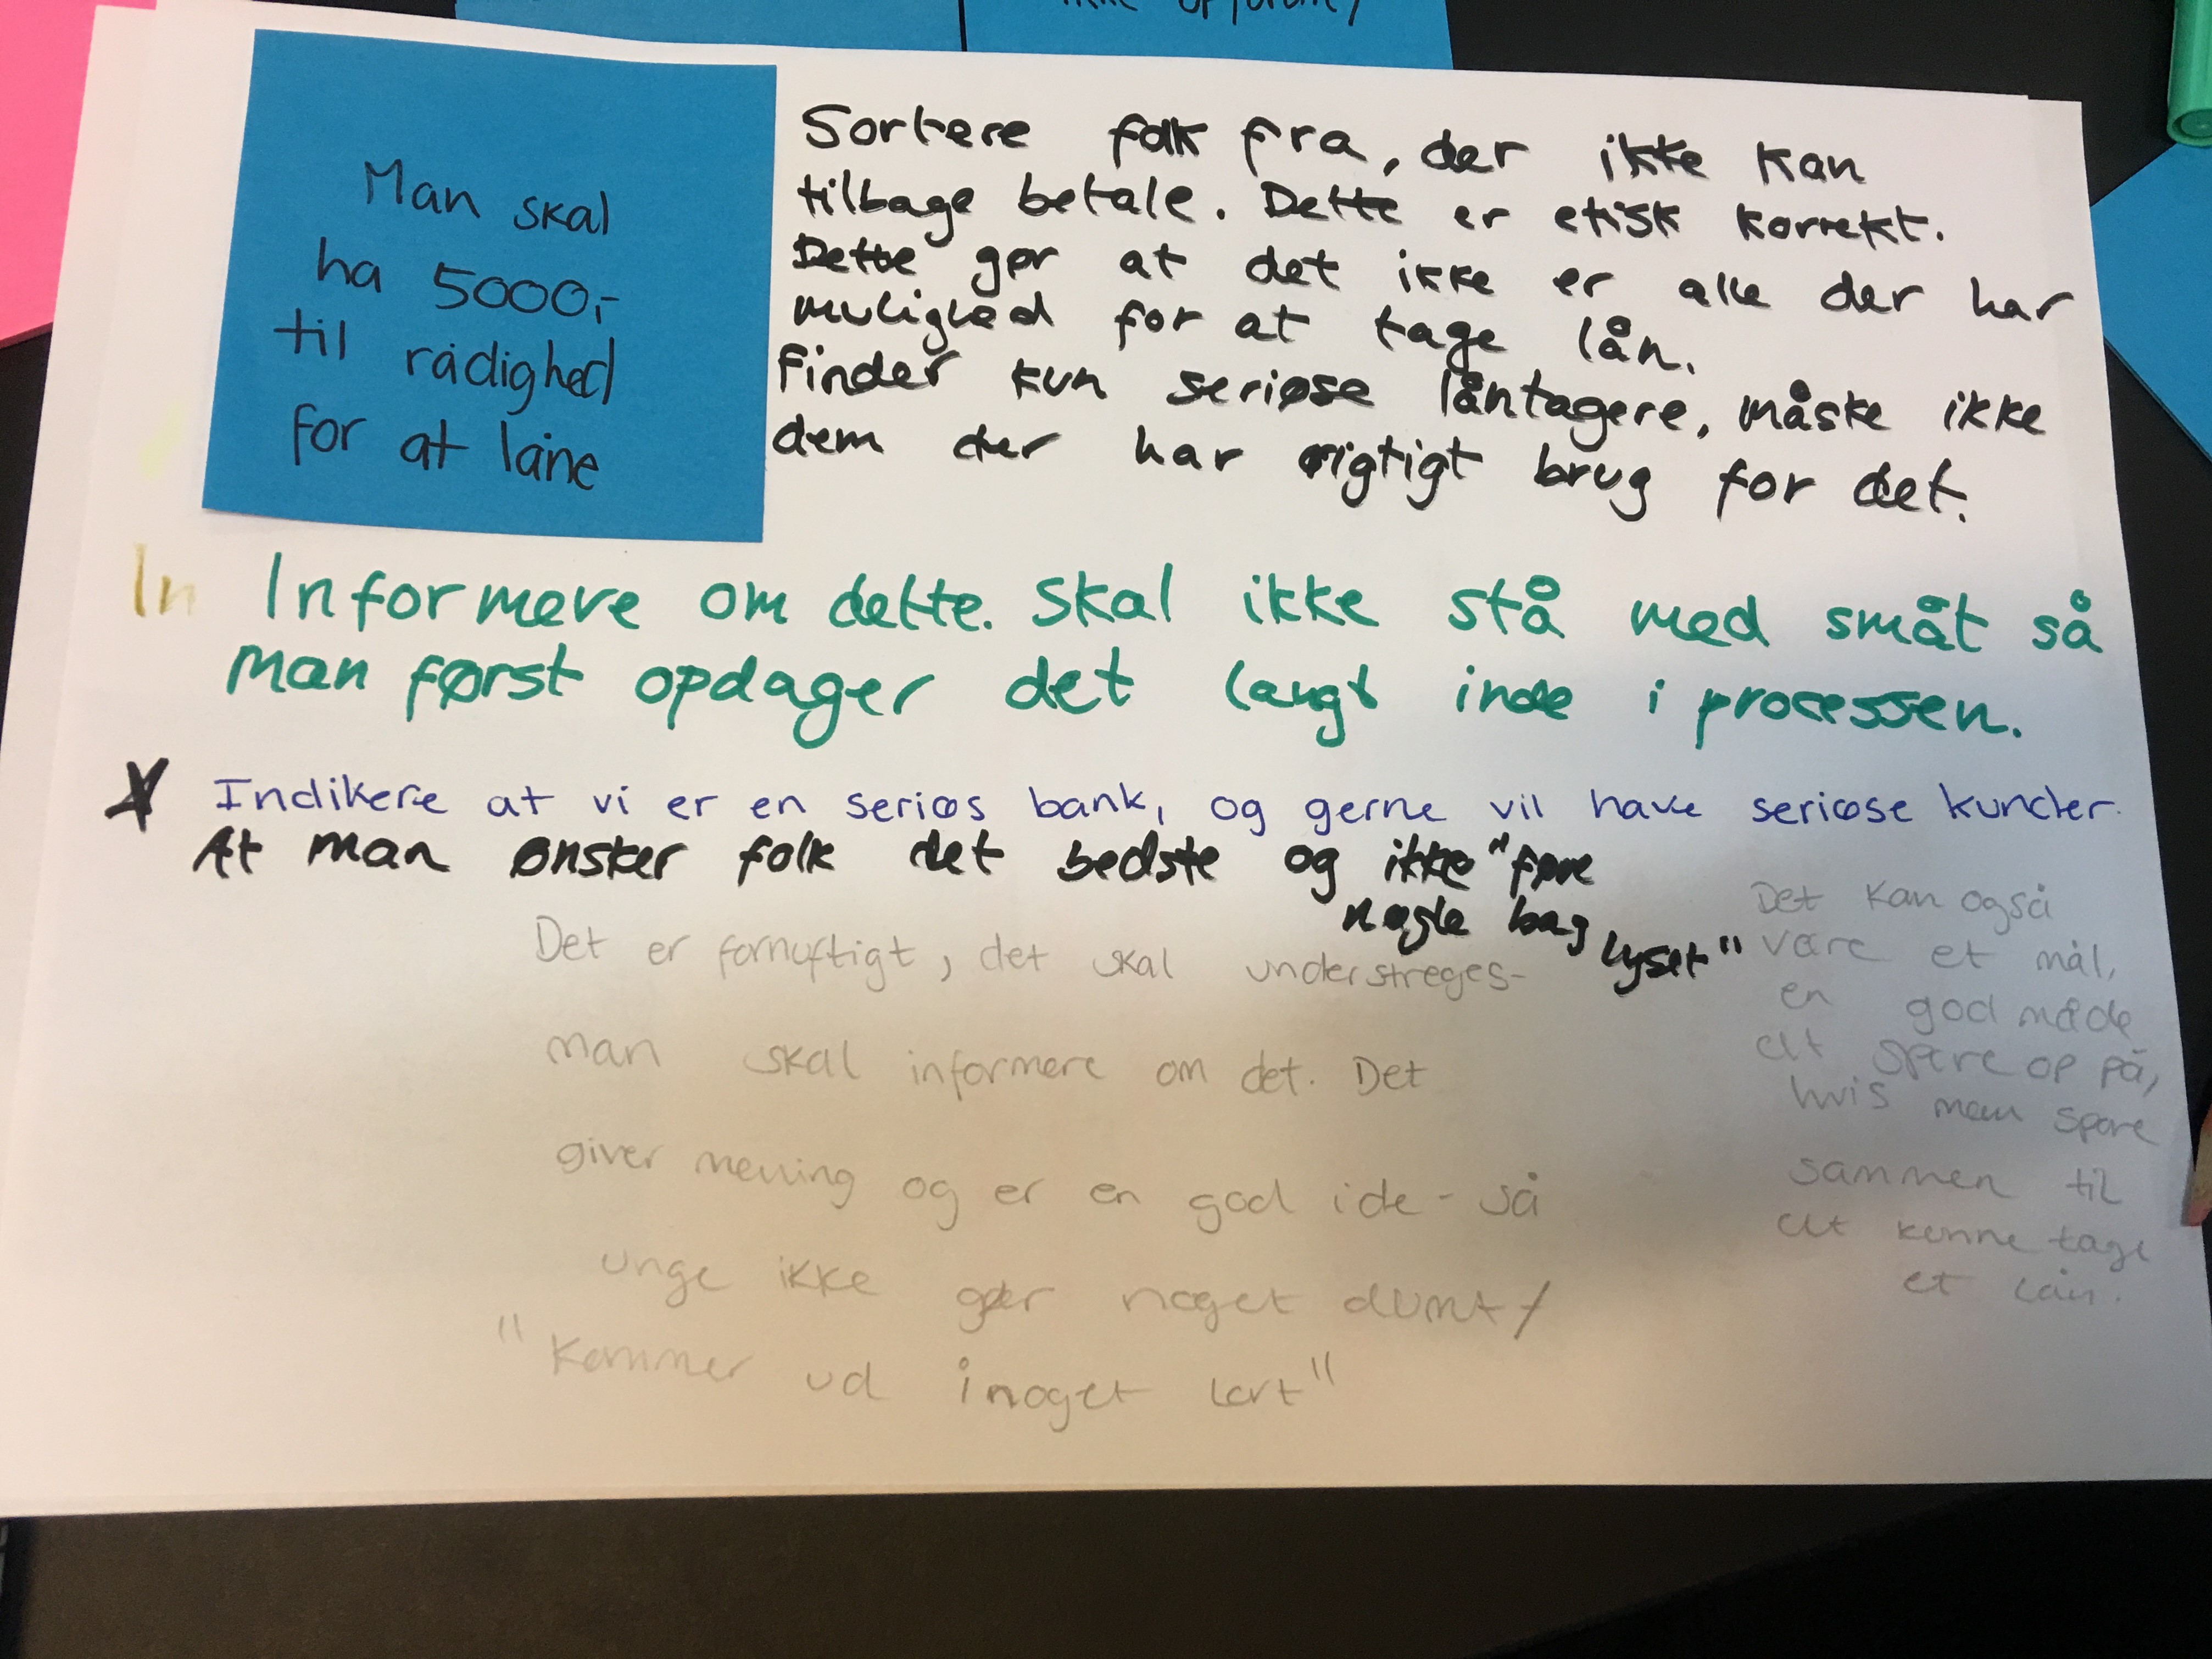 Man skal
ha 5000,-
til rådighed
for at låne
Sortere folk fra, der ikke kan
tilbage betale. Dette er etisk korrekt.
Dette gør at det ikke er alle der har
mulighed for at tage lån.
Finder kun seriøse låntagere, måske ikke
dem der har rigtigt brug for det.
In Informere om dette. Skal ikke stå med småt så
man først opdager det langt inde i processen.
Indikere at vi er en seriøs bank, og gerne vil have seriøse kunder.
At man ønsker folk det bedste og ikke "føre
nogle bag
lyset"
Det er fornuftigt, det skal understreges-
man skal informere om det. Det
giver mening og er en god ide - så
unge ikke gør noget dumt/
"kommer ud i noget lort"
Det kan også
være et mål,
en god måde
at spare op på,
hvis man spare
sammen til
at kunne tage
et lån.